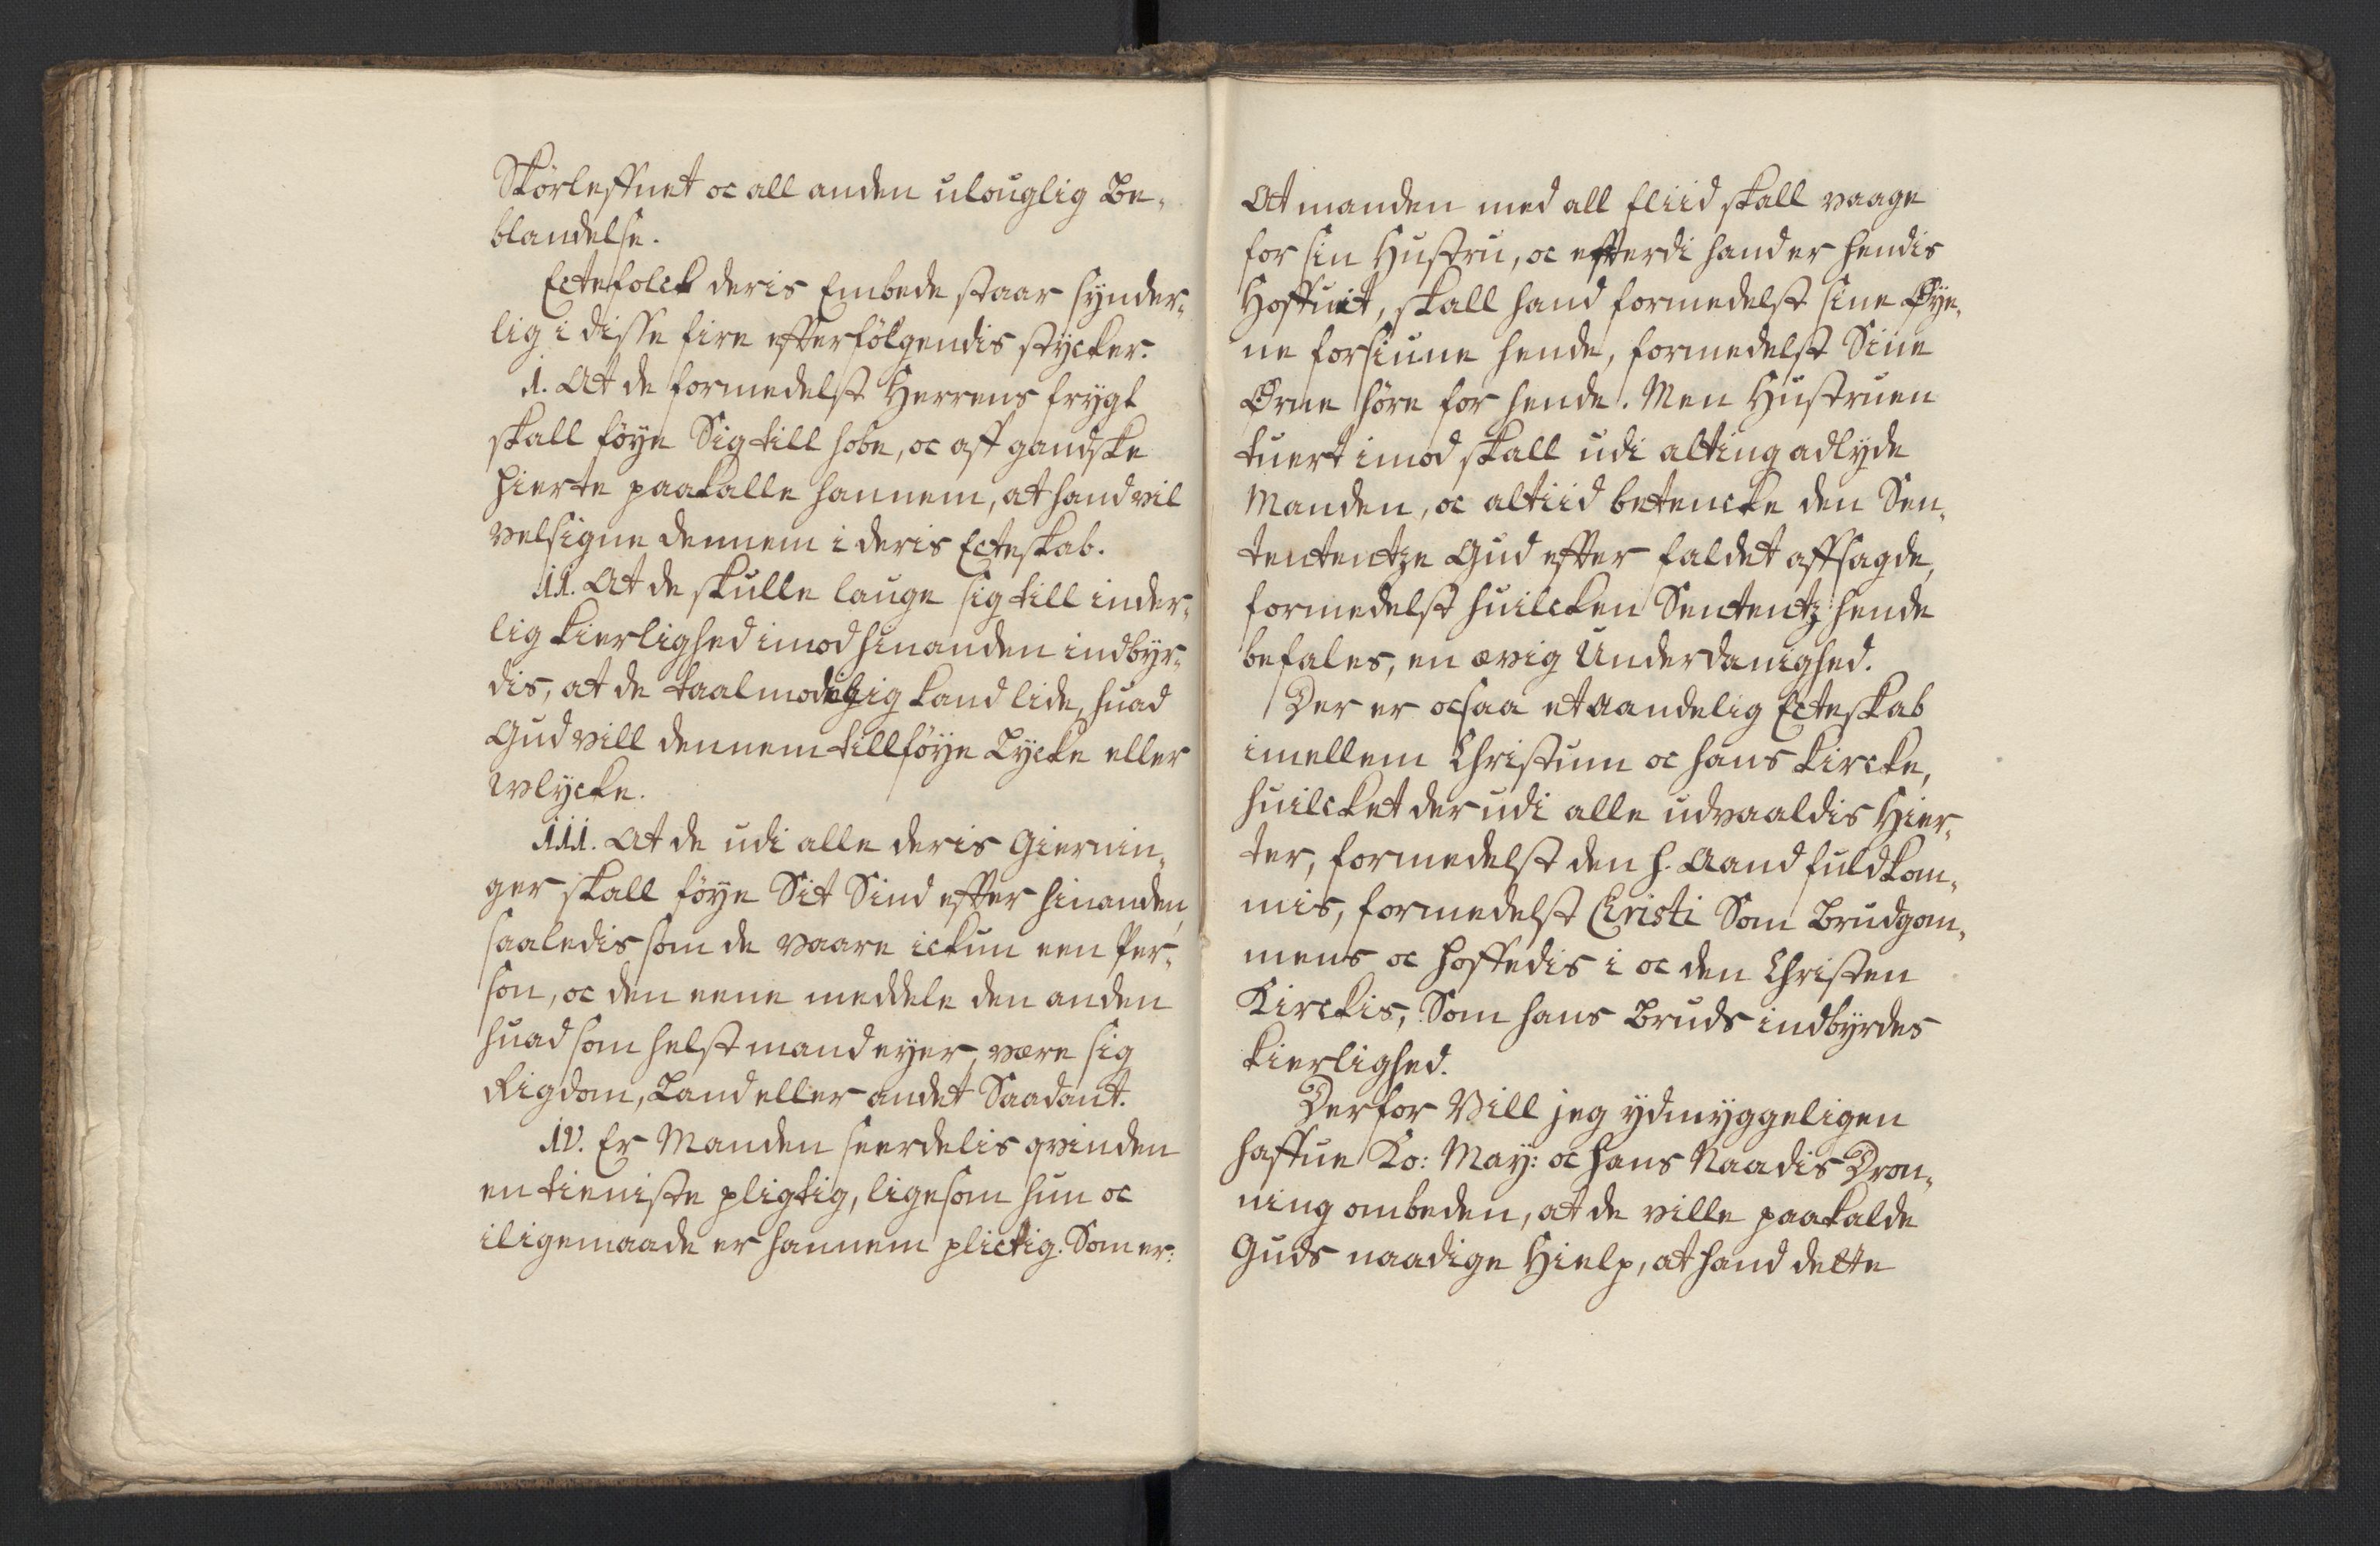 Skörleffnet oc all anden ulouglig Be-
blandelse.
Ectefolck deris Embede staar synder-
lig i disse fire efterfölgendis stÿcker.
1. At de formedelst Herrens frygt
skall föÿe Sig till hobe, oc aff gandske
hierte paakalle hannem, at hand vil
velsigne dennem i deris Ecteskab.
11. At de skulle lauge sig till inder-
lig kierlighed imod hinanden indbÿr-
dis, at de taalmodelig kand lide, huad
Gud vill dennem tillföÿe Lÿcke eller
Wlÿcke.
111. At de udi alle deris Giernin-
ger skall föÿe Sit Sind efter hinanden,
saaledis som de vaare ickun een Per-
son, oc den eene meddele den anden
huad som helst mand eÿer, være sig
Rigdom, Land eller andet Saadant.
1V. Er Manden seerdelis qvinden
en tieniste pligtig, ligesom hun oc
iligemaade er hannem plictig. Som er:
At manden med all fliid skall vaage
for sin Hustru, oc efterdi hand er hendis
Hoffuit, skall hand formedelst sine Øÿe-
ne forsiune hende, formedelst Sine
Ørne höre for hende. Men Hustruen
tuert imod skall udi alting adlÿde
Manden, oc altiid betencke den Sen-
tentze Gud efter faldet affsagde,
formedelst huilcken Sententz: hende
befales, en ævig Underdanighed.
Der er ocsaa et Aandelig Ecteskab
imellem Christum oc hans kircke,
huilcket der udi alle udvaaldis Hier-
ter, formedelst den h. Aand fuldkom-
mis, formedelst Christi Som Brudgom-
mens oc hoffedis i oc den Christen
Kirckis, Som hans Bruds indbÿrdes
kierlighed.
Derfor Vill jeg ÿdmÿggeligen
haffue Ko: Maÿ: oc hans Naadis Dron-
ning ombeden, at de ville paakalde
Guds naadige Hielp, at hand dette